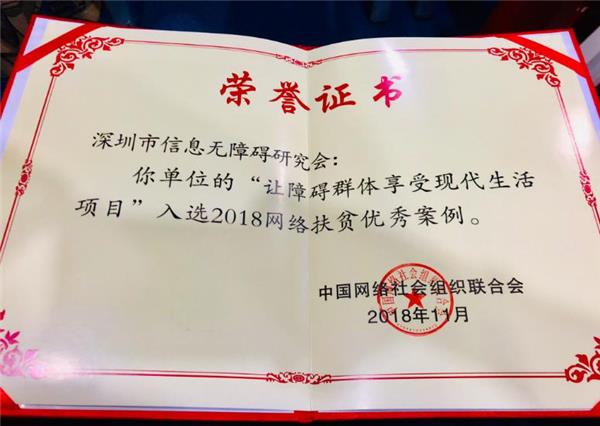 荣誉证书
深圳市信息无障碍研究会：
你单位的“让障碍群体享受现代生活
项目”入选2018网络扶贫优秀案例。
中国网络社会组织联合会
2018年11月